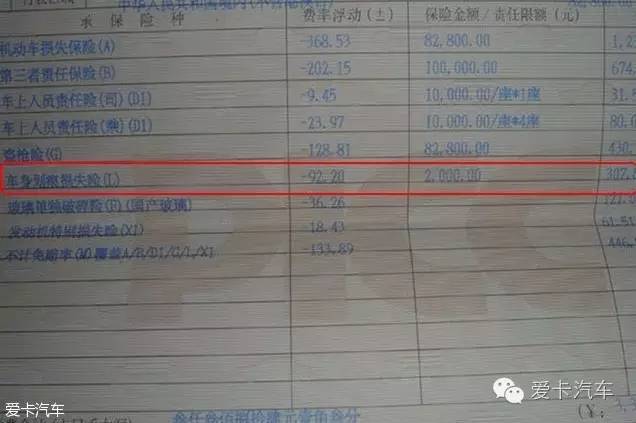 中华人民共和国境内(不含港澳
承 保 险 种 费率浮动(±) 保险金额/责任限额(元)
机动车损失保险(A) -368.53 82,800.00
第三者责任保险(B) -202.15 100,000.00 674.
车上人员责任险(司)(D1) -9.45 10,000.00/座*1座 31.5
车上人员责任险(乘)(D1) -23.97 10,000.00/座*4座 80.0
盗抢险(G) -128.81 82,800.00 430.
车身划痕损失险(L) -92.20 2,000.00 307.
玻璃单独破碎险(F)(国产玻璃) -36.26 121.
发动机特别损失险(X1) -18.43 61.51
不计免赔率(M)覆盖A/B/D1/G/L/X1 -133.89 446.
叁仟叁佰捌拾肆元壹佰叁分
(¥: 3,3
爱卡汽车
爱卡汽车
PICC